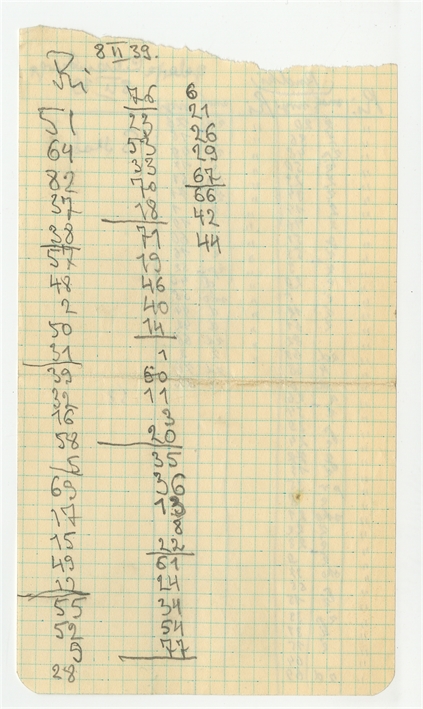 8 II 39.
51
64
82
37
38
57
48
2
50
31
39
32
16
58
5
69
17
15
49
3
55
52
5
28
76
23
45
33
78
18
71
19
46
40
14
1
60
11
3
20
35
36
13
8
22
61
24
34
54
77
6
21
26
29
67
66
42
44